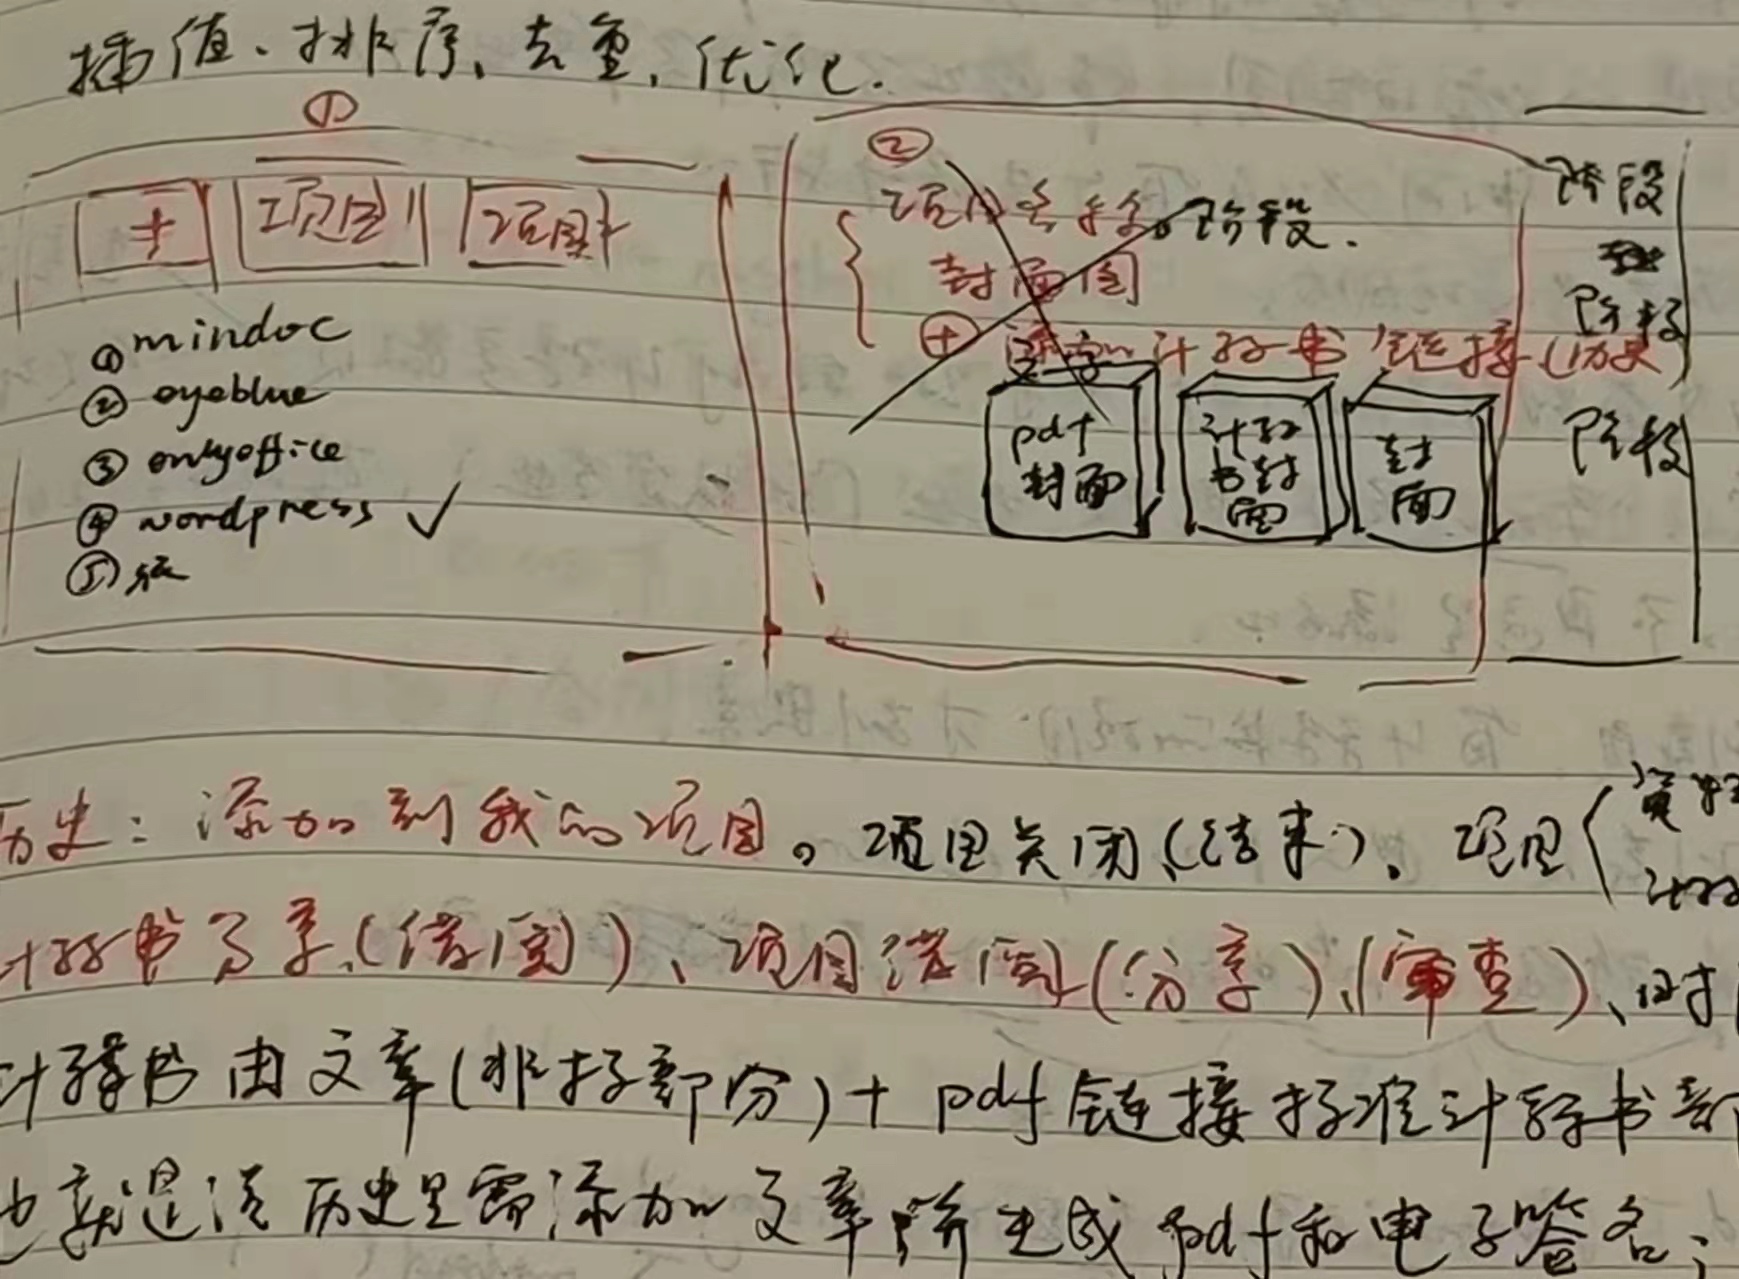 插值、排序、去重、优化.
①
+ 项目1 项目2
① mindoc
② eyeblue
③ onlyoffice
④ wordpress ✓
⑤
②
项目名称 阶段.
封面图
⊕ 添加计算书链接(历史)
文字
pdf封面
计算书封面
封面
阶段
阶段
阶段
历史：添加到我的项目。项目关闭(结束)、项目{
计算书分享(借阅)、项目借阅(分享)、(审查)、时
计算书由文章(非标部分)+pdf链接标准计算书部
也就是说历史里需添加文章并生成pdf和电子签名；